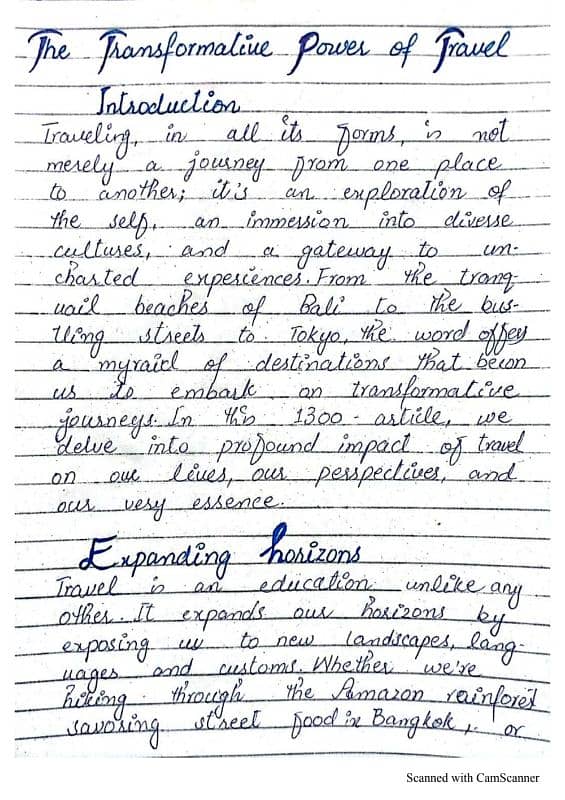 The Transformative Power of Travel
Introduction
Traveling, in all its forms, is not
merely a journey from one place
to another; it is an exploration of
the self, an immersion into diverse
cultures, and a gateway to un-
charted experiences. From the tranq-
uail beaches of Bali to the bus-
tling streets to Tokyo, the word offey
a myraid of destinations that becon
us to embark on transformative
journeys. In this 1300 - article, we
delve into profound impact of travel
on our lives, our perspectives, and
our very essence.
Expanding horizons
Travel is an education unlike any
other. It expands our horizons by
exposing us to new landscapes, lang-
uages and customs. Whether we're
hiking through the Amazon rainforest
savoring street food in Bangkok, or
Scanned with CamScanner